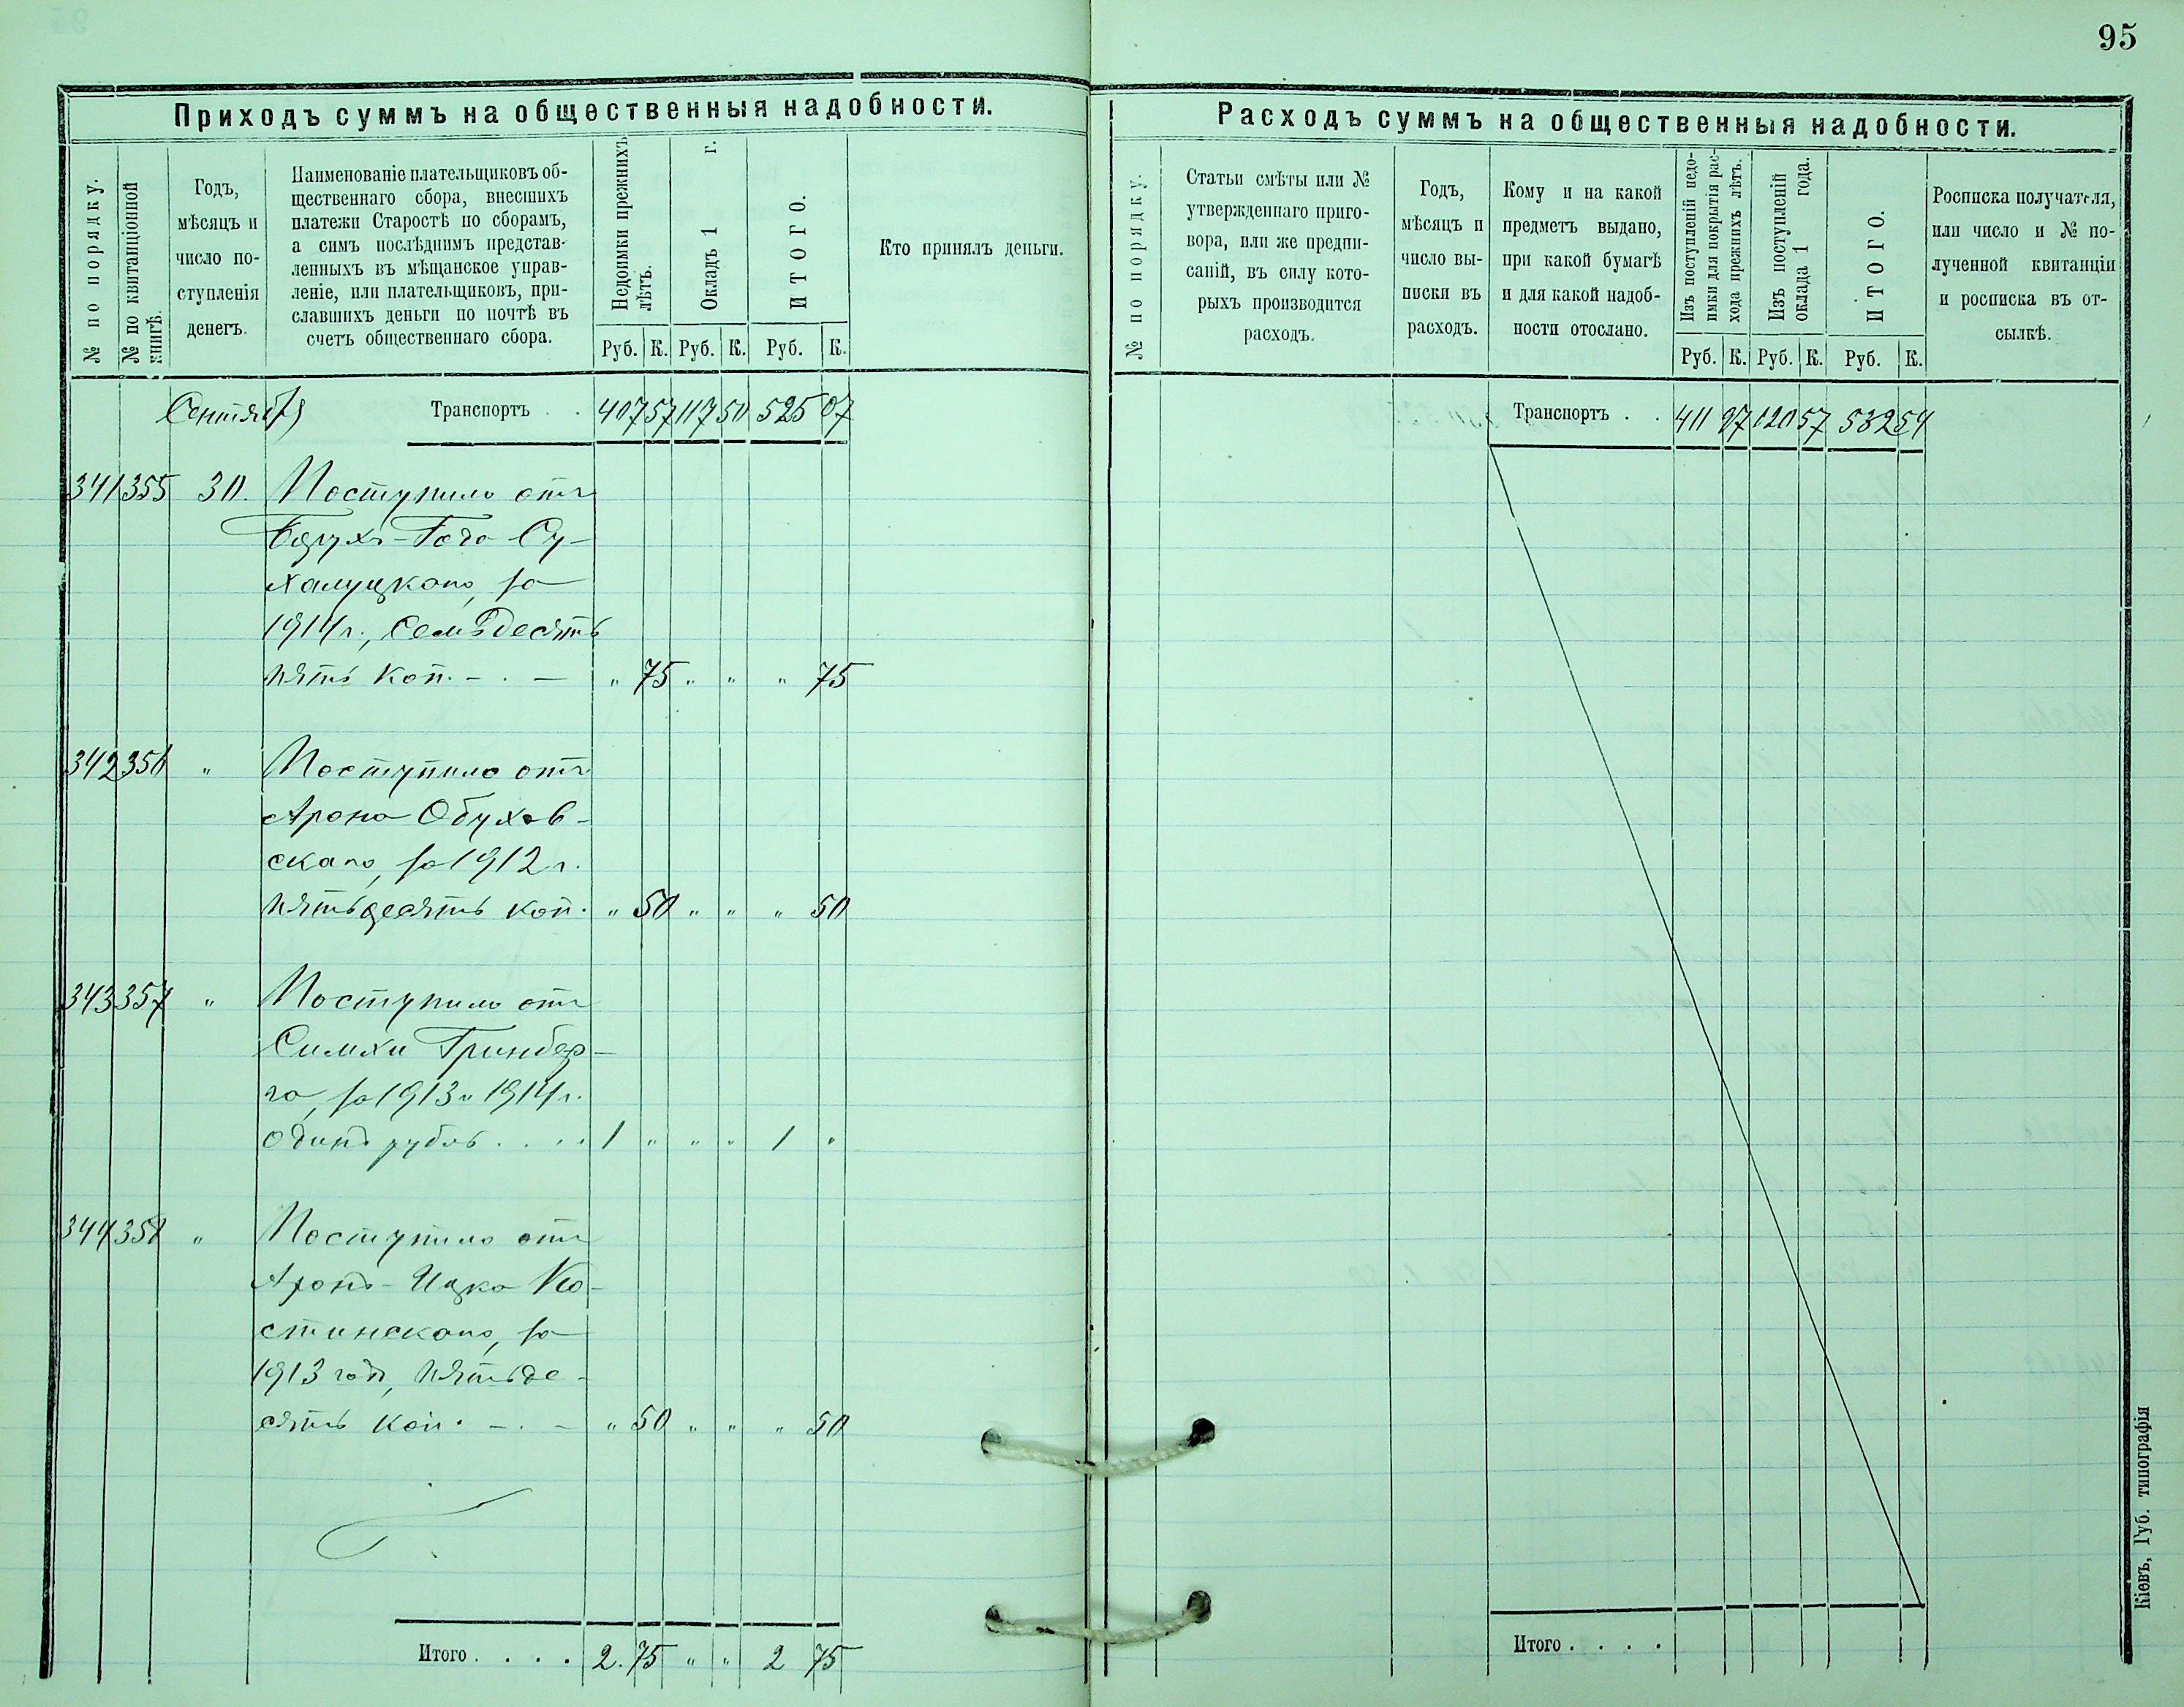 95
Приходъ суммъ на общественныя надобности.
№ по порядку.
№ по квитанціонной
книгѣ.
Годъ,
мѣсяцъ и
число по-
ступленія
денегъ.
Наименованіе плательщиковъ об-
щественнаго сбора, внесшихъ
платежи Старостѣ по сборамъ,
а симъ послѣднимъ представ-
ленныхъ въ мѣщанское управ-
леніе, или плательщиковъ, при-
славшихъ деньги по почтѣ въ
счетъ общественнаго сбора.
Недоимки прежнихъ
лѣтъ.
Окладъ 1 г.
ИТОГО.
Кто принялъ деньги.
Руб. К. Руб. К. Руб. К.
Сентября Транспортъ . . 407 57 117 50 525 07
341 355 30. Поступило отъ
Борухъ-Годо Су-
халуцкаго, за
1914 г., семьдесятъ
пять коп. - . - " 75 " " " 75
342 356 " Поступило отъ
Арона Обухов-
скаго, за 1912 г.
пятьдесятъ коп. " 50 " " " 50
343 357 " Поступило отъ
Симхи Гринбер-
га, за 1913 и 1914 г.
одинъ рубль . . . . 1 " " " 1 "
344 358 " Поступило отъ
Аронъ-Ицко Ко-
стинскаго, за
1913 годъ, пятьде-
сятъ коп. - . - " 50 " " " 50
Итого . . . . 2. 75 " " 2 75
Расходъ суммъ на общественныя надобности.
№ по порядку.
Статьи смѣты или №
утвержденнаго приго-
вора, или же предпи-
саній, въ силу кото-
рыхъ производится
расходъ.
Годъ,
мѣсяцъ и
число вы-
писки въ
расходъ.
Кому и на какой
предметъ выдано,
при какой бумагѣ
и для какой надоб-
ности отослано.
Изъ поступленій недо-
имки для покрытія рас-
хода прежнихъ лѣтъ.
Изъ поступленій
оклада 1 года.
ИТОГО.
Росписка получателя,
или число и № по-
лученной квитанціи
и росписка въ от-
сылкѣ.
Руб. К. Руб. К. Руб. К.
Транспортъ . . 411 97 120 57 532 54
Итого . . . .
Кіевъ, Губ. типографія